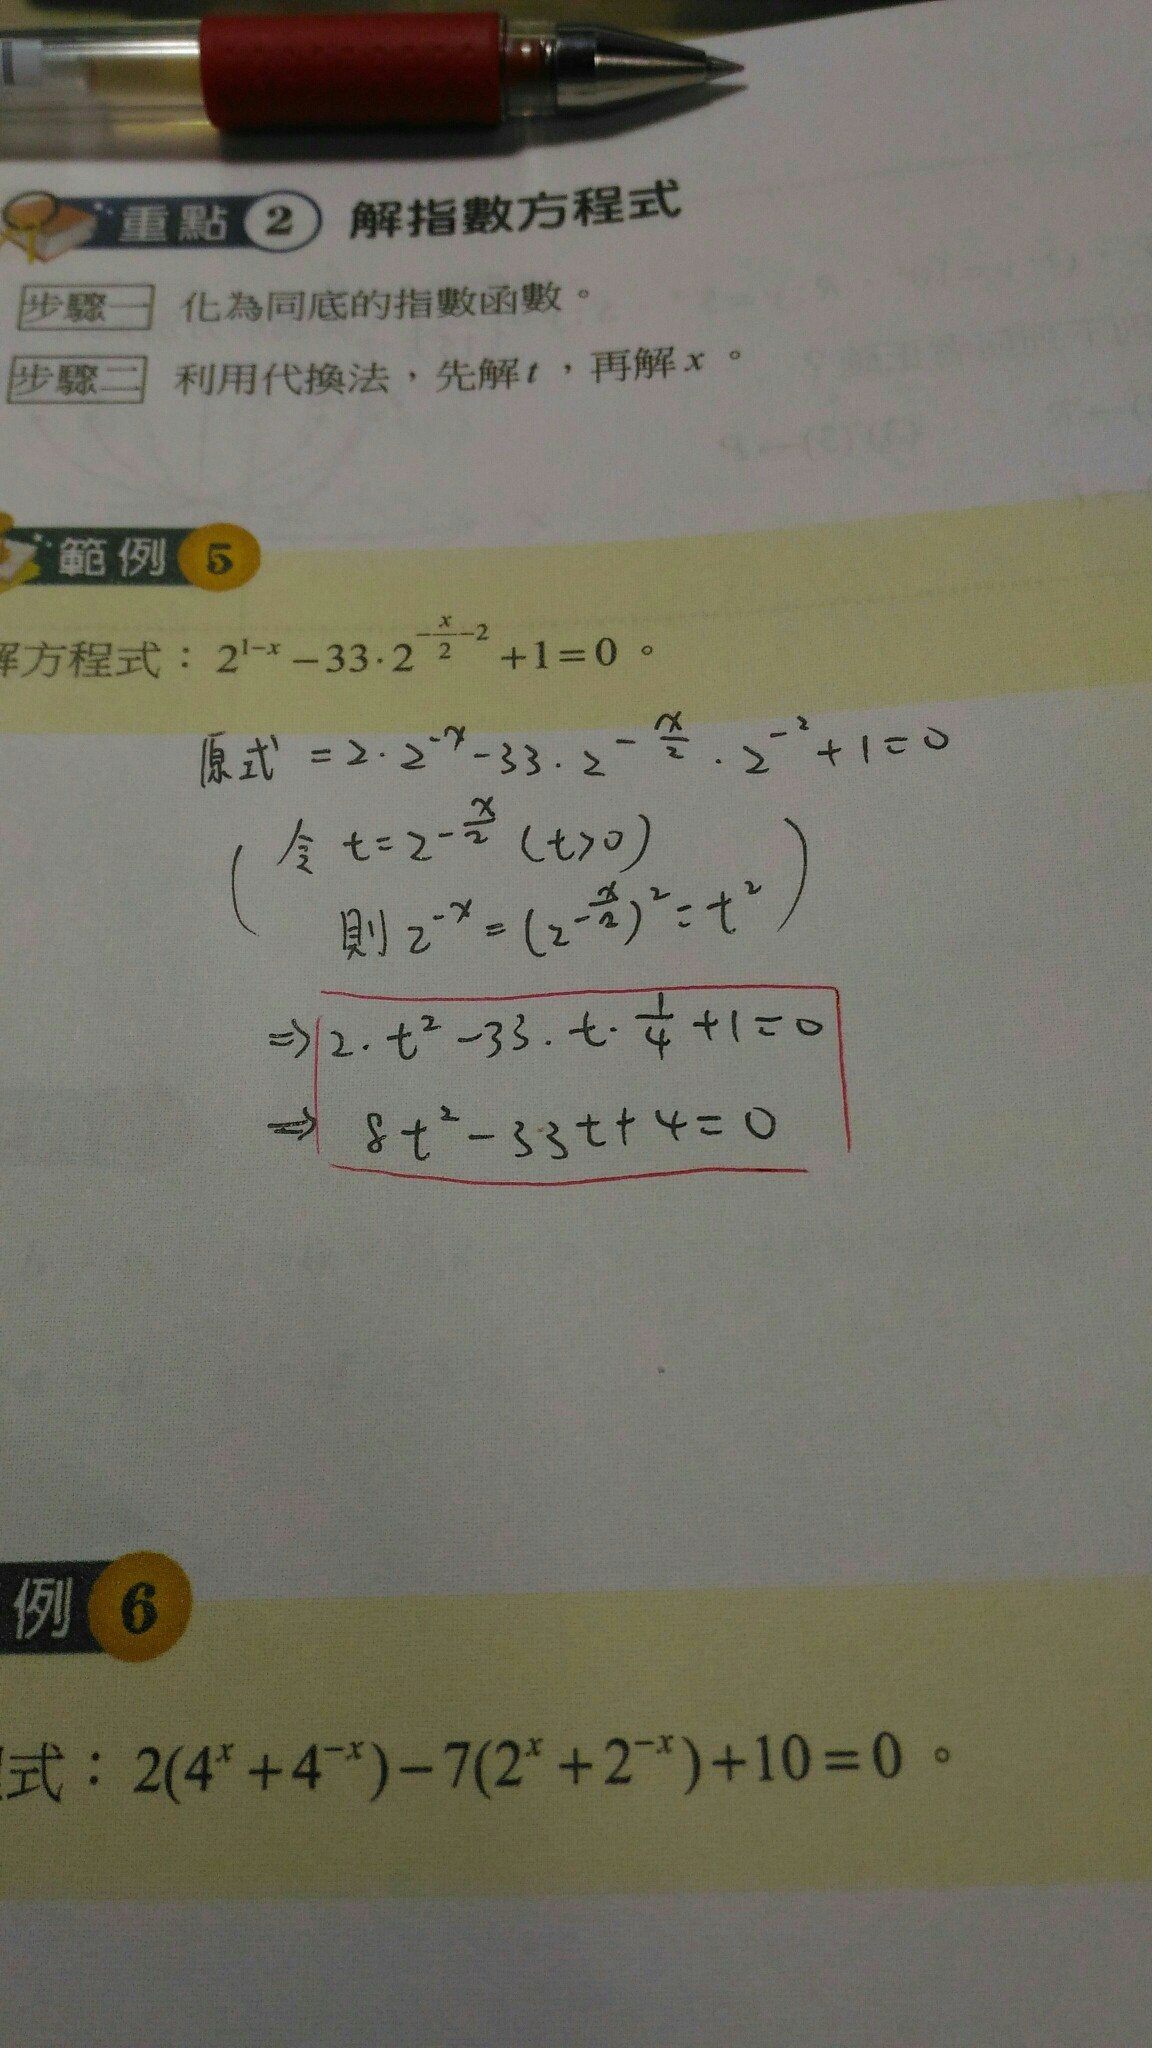 重點 2 解指數方程式
步驟一 化為同底的指數函數。
步驟二 利用代換法，先解t，再解x。
範例 5
解方程式：2^{1-x}-33·2^{-\frac{x}{2}-2}+1=0。
原式 = 2·2^{-x}-33·2^{-\frac{x}{2}}·2^{-2}+1=0
( 令 t=2^{-\frac{x}{2}} (t>0)
則 2^{-x}=(2^{-\frac{x}{2}})^2=t^2 )
⇒ 2·t^2-33·t·\frac{1}{4}+1=0
⇒ 8t^2-33t+4=0
例 6
程式：2(4^x+4^{-x})-7(2^x+2^{-x})+10=0。